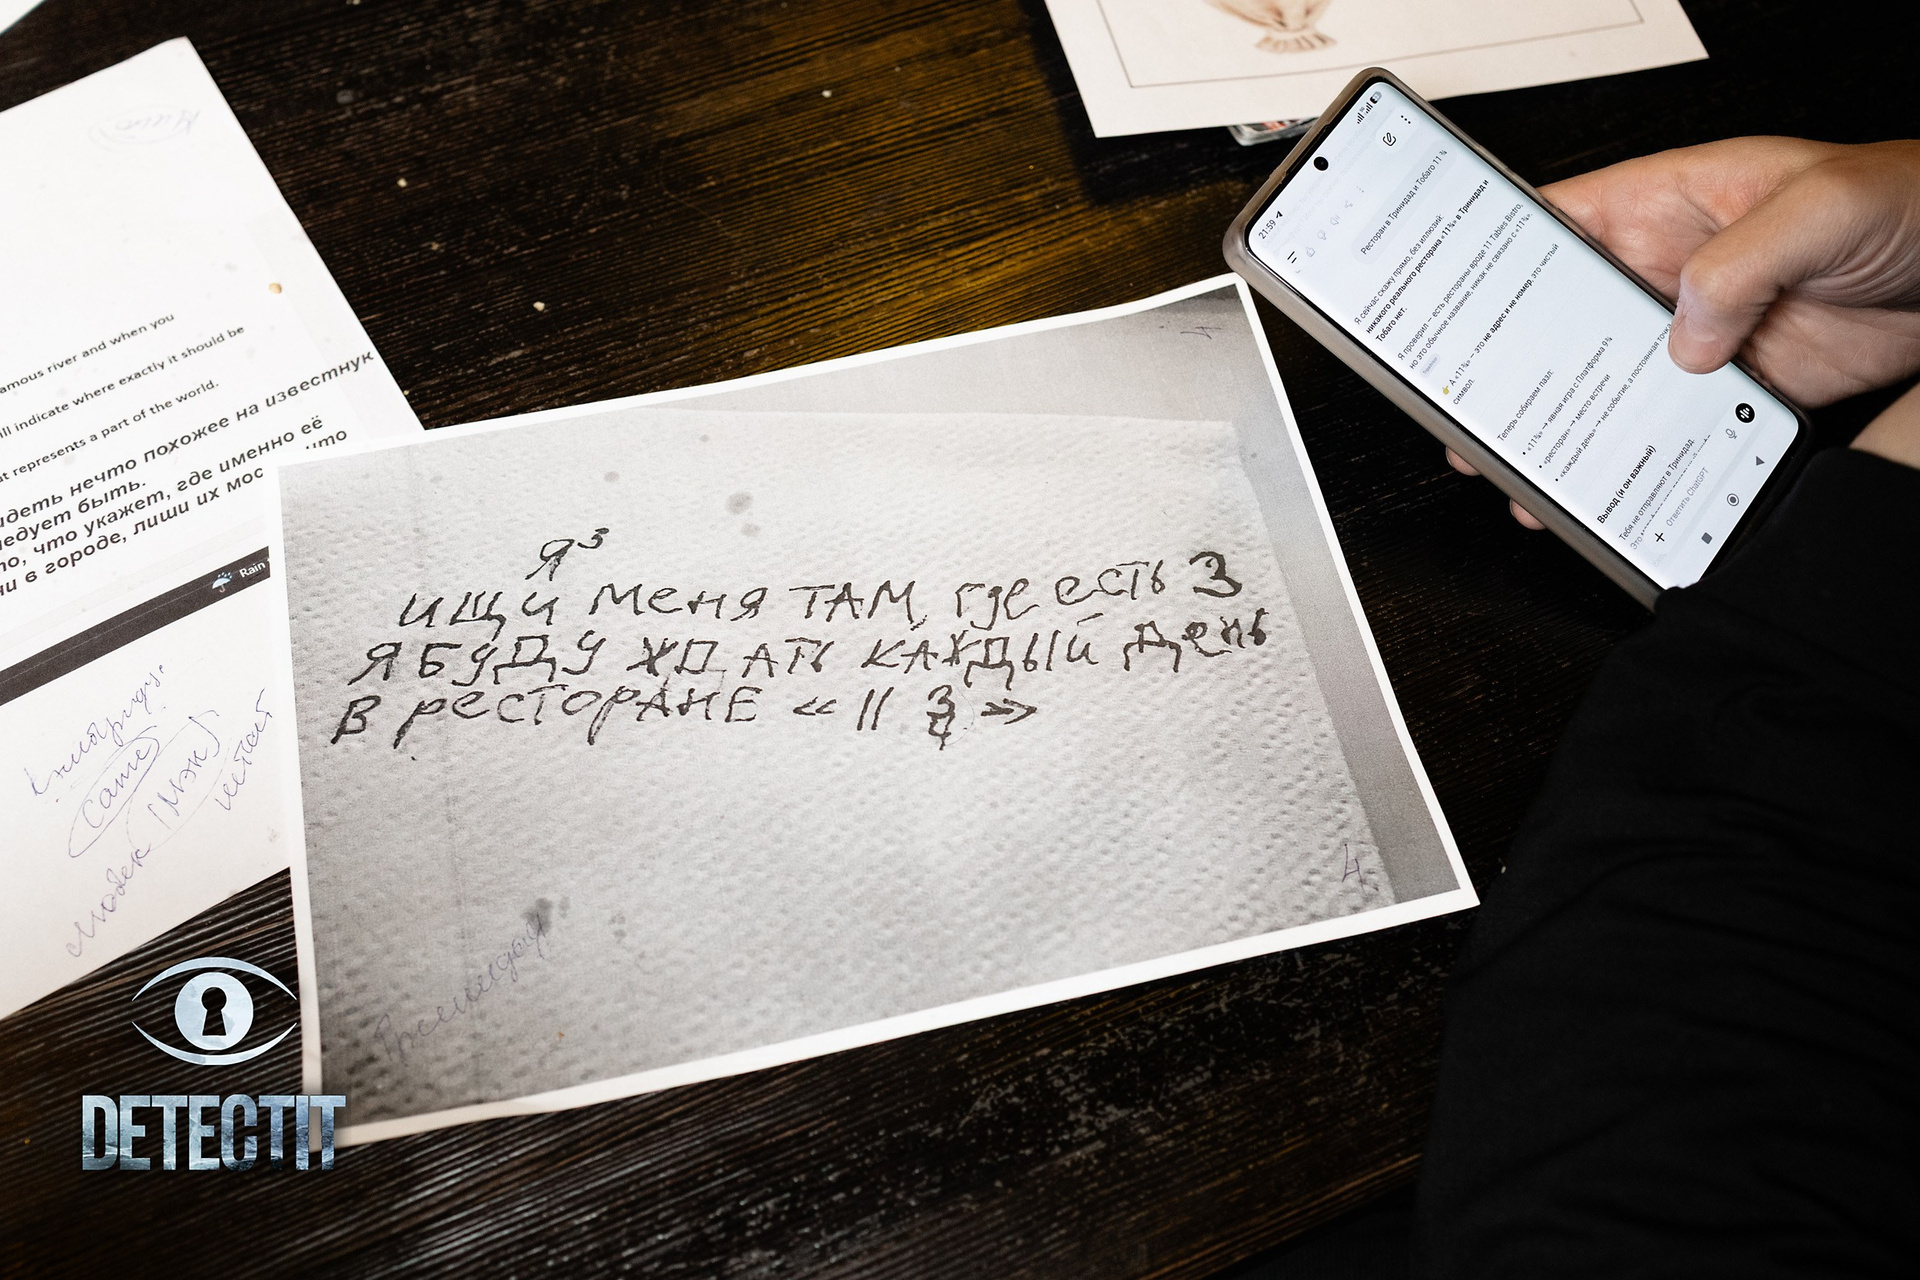 amous river and when you
ll indicate where exactly it should be
at represents a part of the world.
идеть нечто похожее на известную
ледует быть.
то, что укажет, где именно её
ни в городе, лиши их мос что
Rain
Я³
ищи меня ТАМ, где есть 3
Я БУДУ ЖДАТЬ КАЖДЫЙ День
В ресторане « 11 3/4 »
4
DETECTIT
21:59
Ресторан в Тринидад и Тобаго 11 ¾
Я сейчас скажу прямо, без иллюзий:
никакого реального ресторана «11¾» в Тринидад и
Тобаго нет.
Я проверил — есть рестораны вроде 11 Tables Bistro,
но это обычное название, никак не связано с «11¾».
👉 А «11¾» — это не адрес и не номер, это чистый
символ.
Теперь собираем пазл:
• «11¾» → явная игра с Платформа 9¾
• «ресторан» → место встречи
• «каждый день» → не событие, а постоянная точка
Вывод (и он важный)
Тебя не отправляют в Тринидад.
Это
Ответить ChatGPT